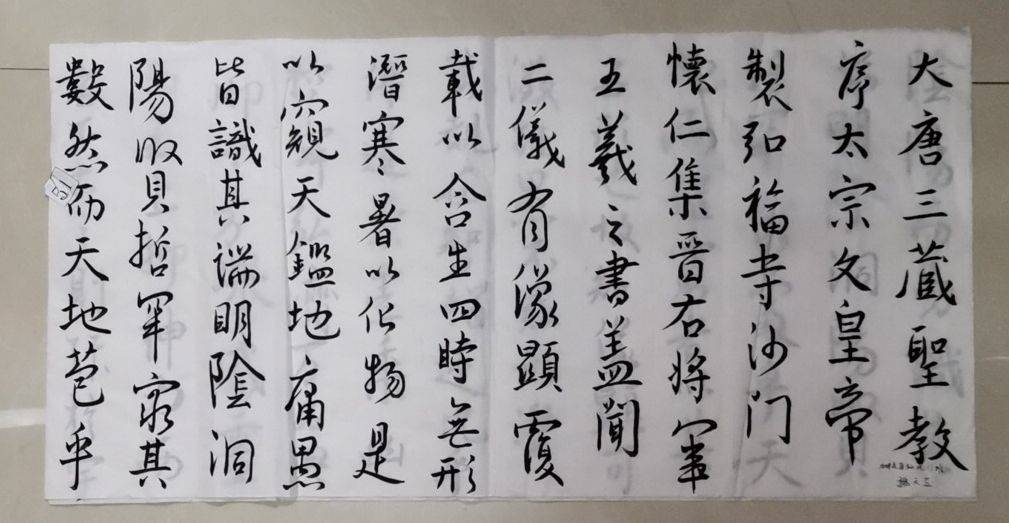 大唐三藏聖教
序太宗文皇帝
製弘福寺沙门
懷仁集晋右将軍
王羲之書盖聞
二儀有像顯覆
載以含生四時無形
潛寒暑以化物是
以窺天鑑地庸愚
皆識其端明陰洞
陽賢哲罕窮其
數然而天地苞乎